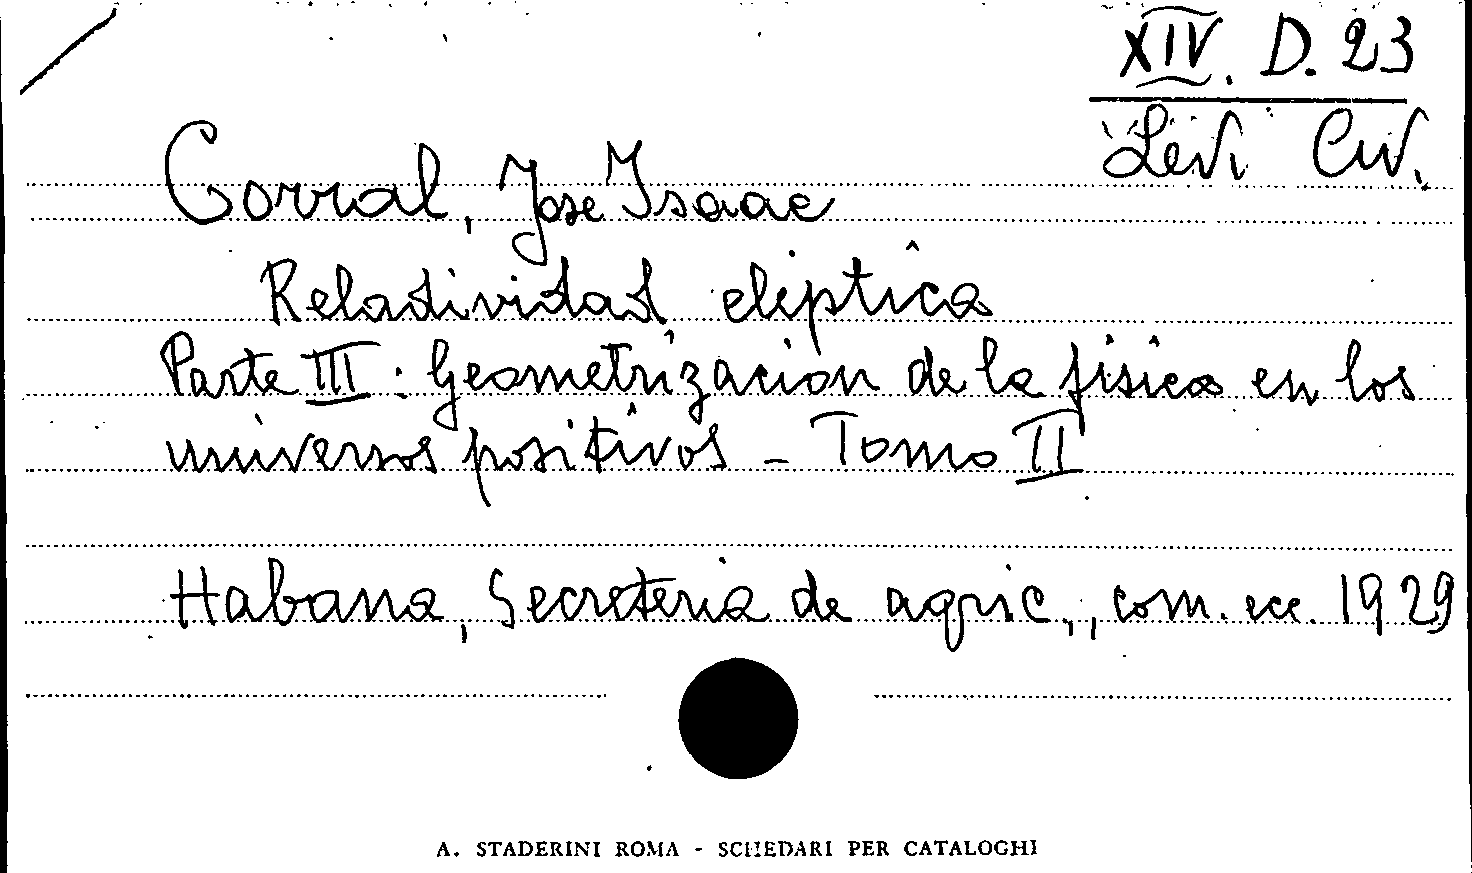 XIV. D. 23
Levi Civ.
Corral, Jose Isaac
Relatividad eliptica
Parte III: Geometrización de la física en los
universos positivos - Tomo II
Habana, Secreteria de agric., com. ecc. 1929
A. STADERINI ROMA - SCHEDARI PER CATALOGHI